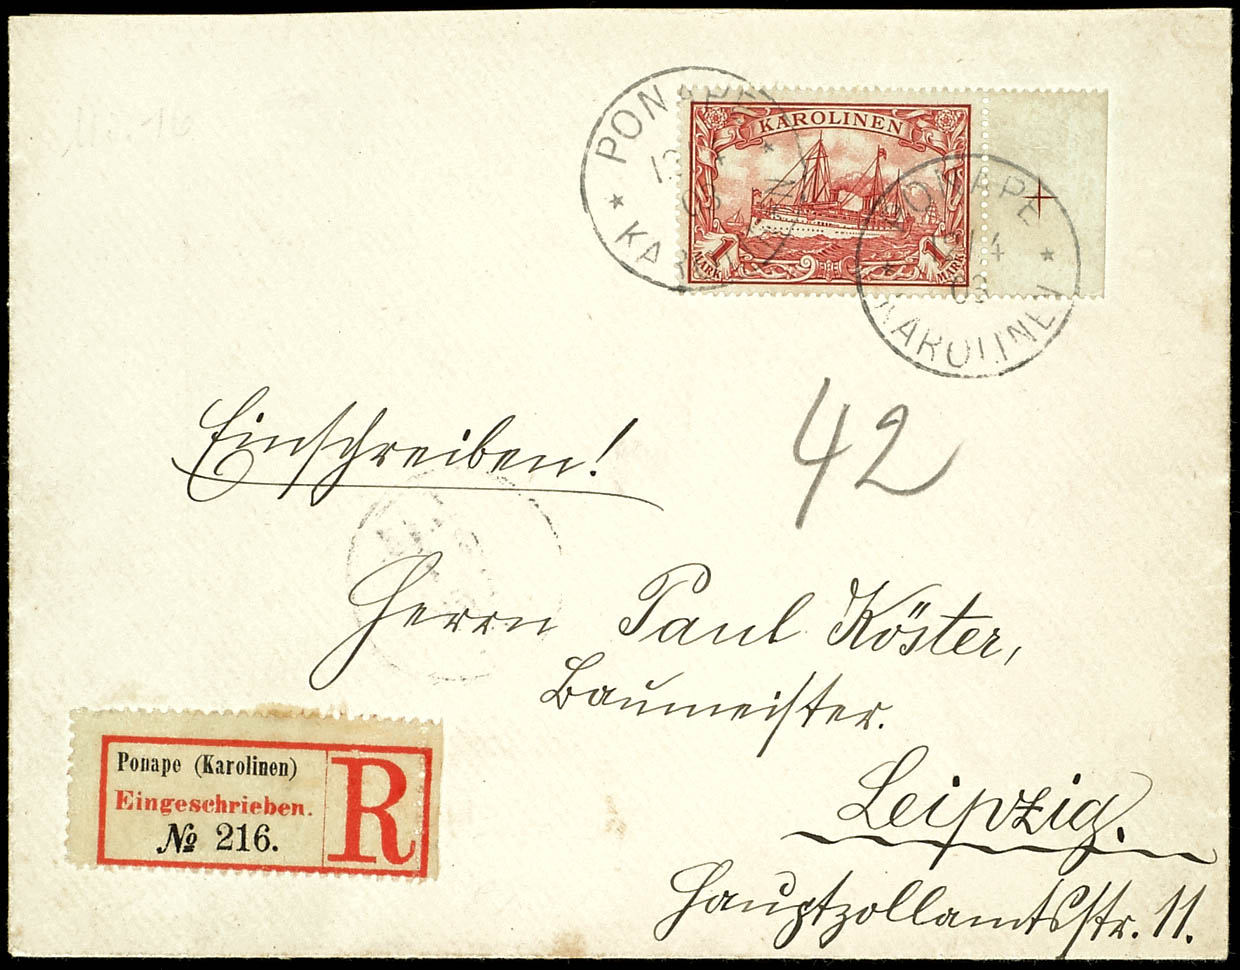 KAROLINEN
1 MARK 1 MARK
PONAPE
KAROLINEN
PONAPE
14
03
KAROLINEN
Einschreiben!
42
Herrn Paul Köster,
Baumeister.
Leipzig.
Hauptzollamtsstr. 11.
Ponape (Karolinen)
Eingeschrieben.
№ 216.
R